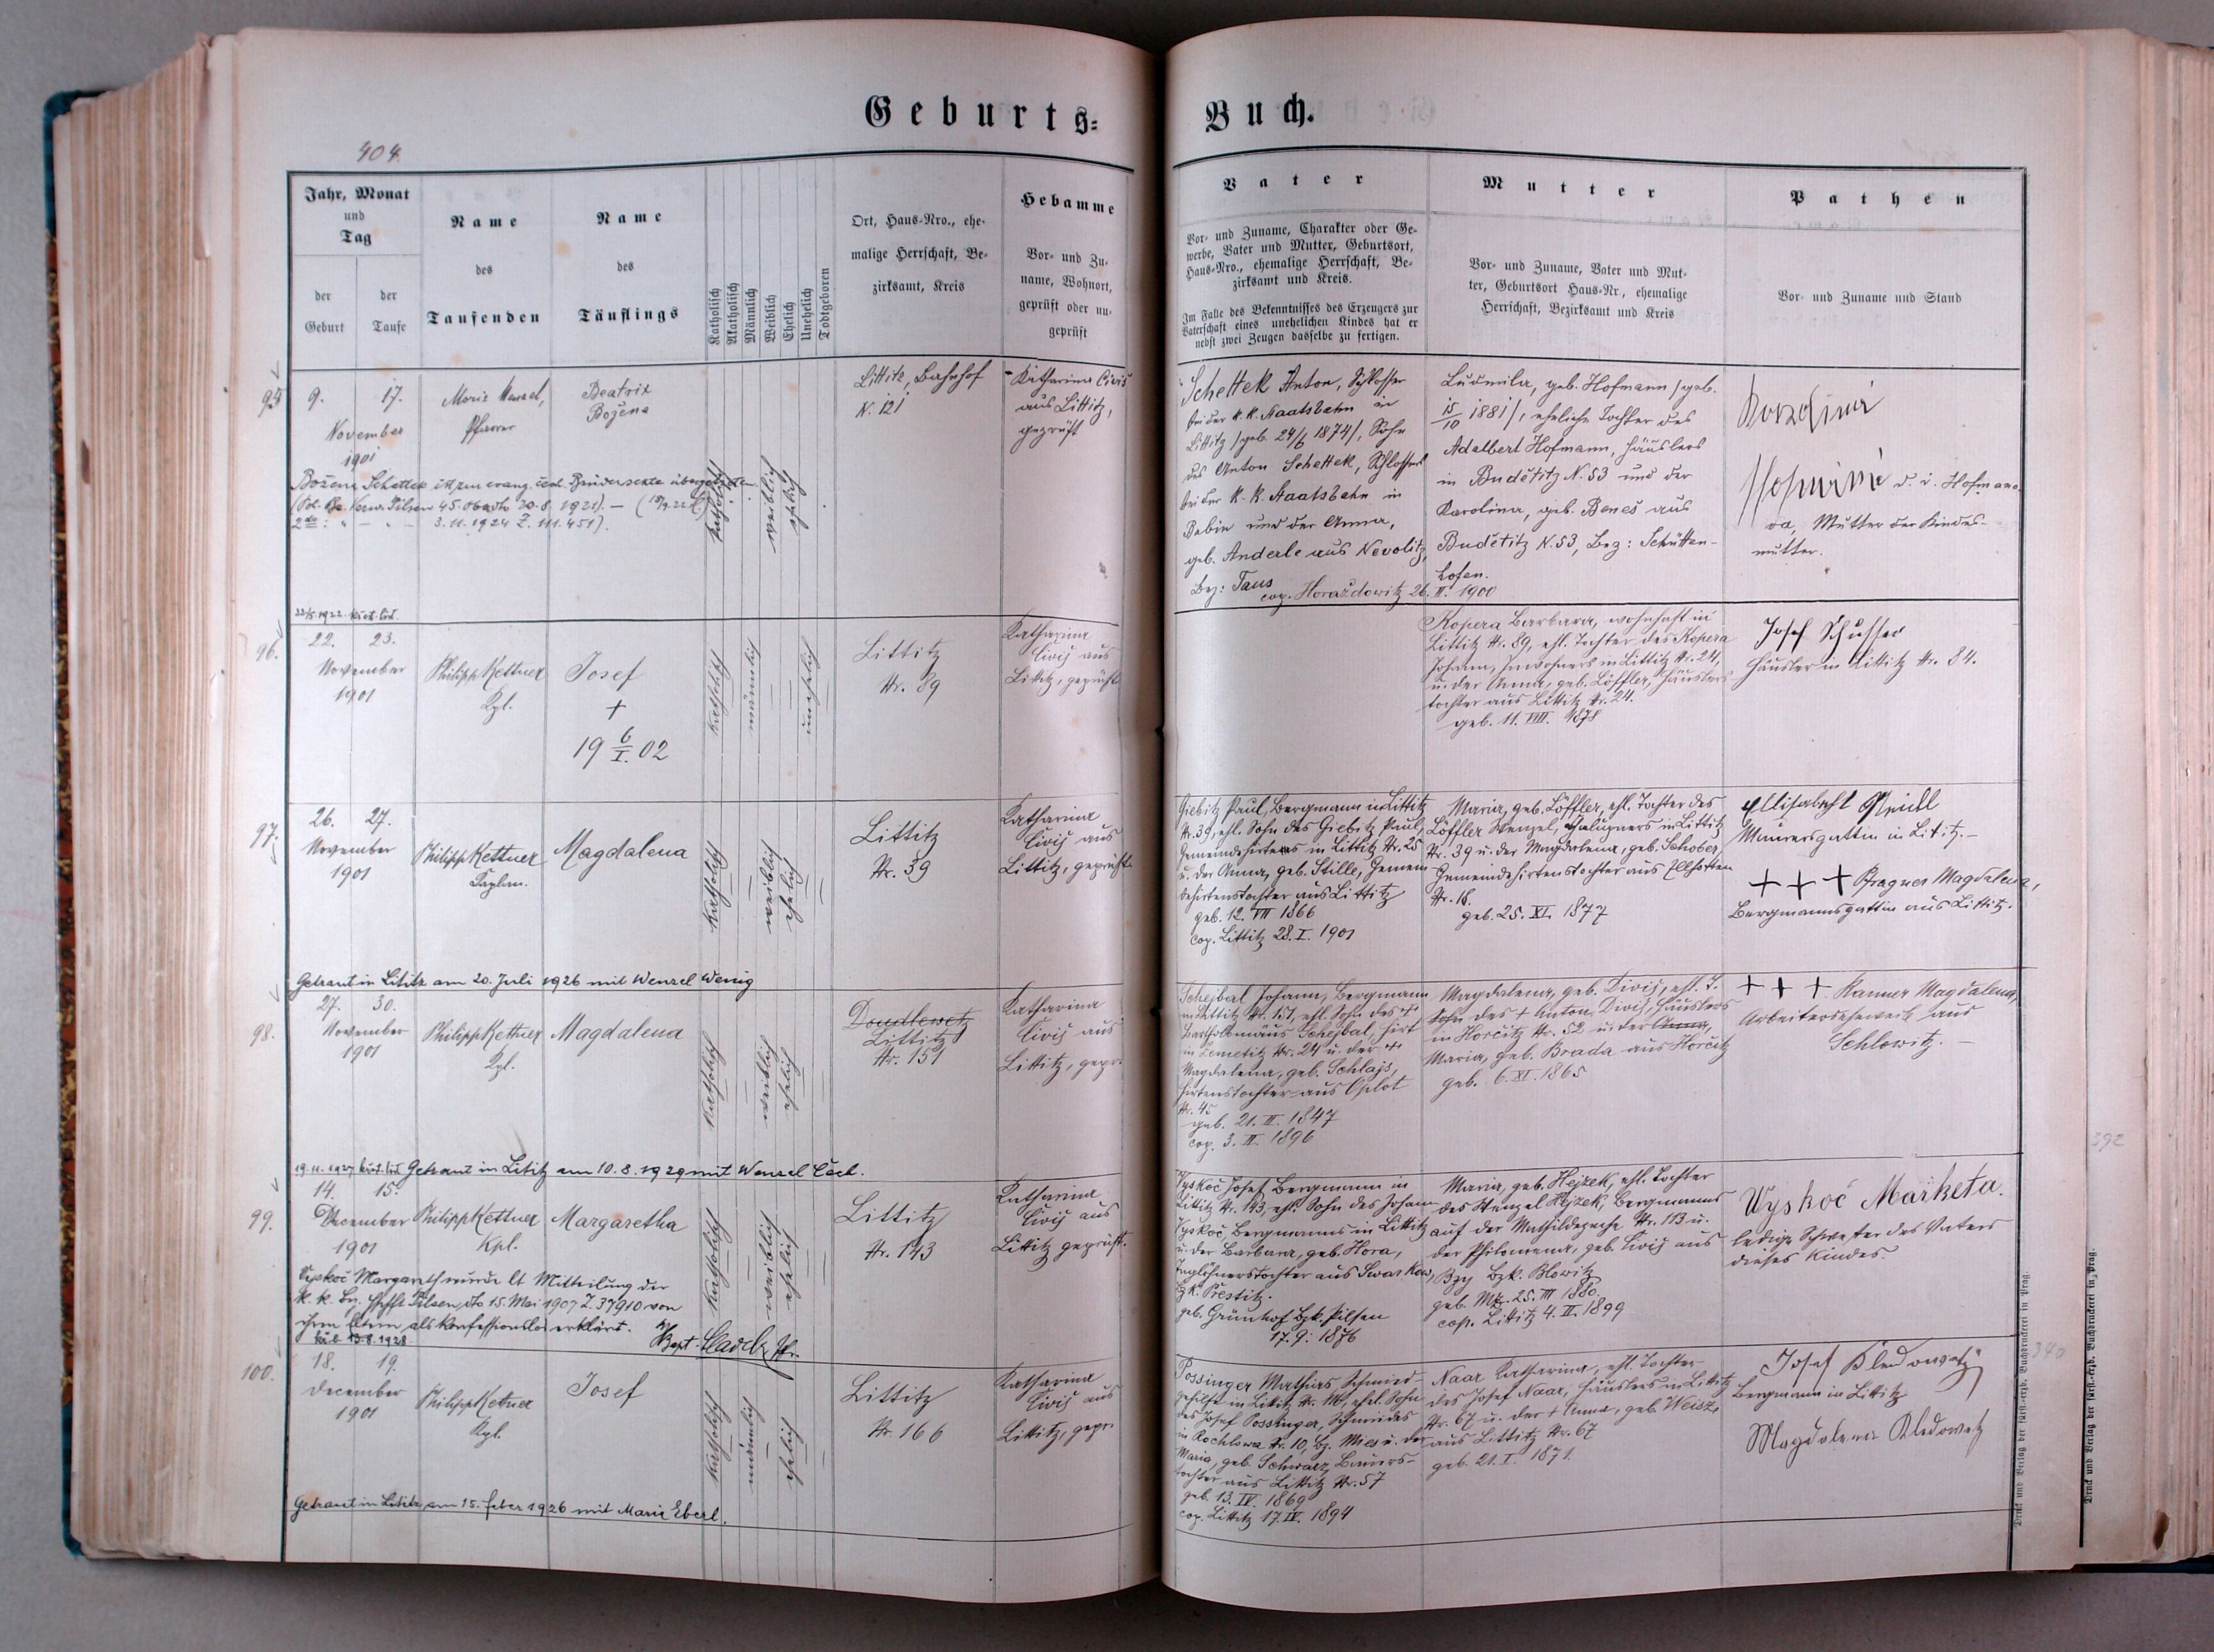 Geburts-
Buch.
404.
Jahr, Monat
und
Tag
der
Geburt
der
Taufe
Name
des
Taufenden
Name
des
Täuflings
Katholisch
Akatholisch
Männlich
Weiblich
Ehelich
Unehelich
Todtgeboren
Ort, Haus-Nro., ehe-
malige Herrschaft, Be-
zirksamt, Kreis
Hebamme
Vor- und Zu-
name, Wohnort,
geprüft oder un-
geprüft
Vater
Vor- und Zuname, Charakter oder Ge-
werbe, Vater und Mutter, Geburtsort,
Haus-Nro., ehemalige Herrschaft, Be-
zirksamt und Kreis.
Im Falle des Bekenntnisses des Erzeugers zur
Vaterschaft eines unehelichen Kindes hat er
nebst zwei Zeugen dasselbe zu fertigen.
Mutter
Vor- und Zuname, Vater und Mut-
ter, Geburtsort Haus-Nr., ehemalige
Herrschaft, Bezirksamt und Kreis
Pathen
Vor- und Zuname und Stand
95
9. 17.
November
1901
Pfarrer
Beatrix
Božena
katholisch
weiblich
ehelich
Littitz, Bahnhof
N. 121
Katharina Civiš
aus Littitz,
geprüft
Schettek Anton, Schlosser
bei der k. k. Staatsbahn in
Littitz /geb. 24/6 1874/, Sohn
des Anton Schettek, Schlossers
bei der k. k. Staatsbahn in
und der Anna,
geb. Anderle aus Nevolitz,
Bez: Taus
cop. Horaždowitz 26. II. 1900
Ludmila, geb. Hofmann /geb.
15/10 1881/, eheliche Tochter des
Adalbert Hofmann, Häuslers
in Budětitz N. 53 und der
Karolina, geb. Beneš aus
Budětitz N. 53, Bez: Schütten-
hofen.
d. i. Hofmano-
va, Mutter der Kindes-
mutter.
Božena Schettek ist zum evang. Brüdersekte übergetreten
3. 11. 1924 Z. 111.451).
96.
22. 23.
November
1901
Philipp Kettner
Kpl.
Josef
+
19 6/I. 02
katholisch
männlich
unehelich
Littitz
Nr. 89
Katharina
Civiš aus
Littitz, geprüft
Kopera Barbara, wohnhaft in
Littitz Nr. 89, ehl. Tochter des Kopera
Johann, Inwohners in Littitz Nr. 24,
u. der Anna, geb. Löffler, Häuslers-
tochter aus Littitz Nr. 24.
geb. 11. VIII. 1878
Josef Schusser
Häusler in Littitz Nr. 84.
97.
26. 27.
November
1901
Philipp Kettner
Kaplan.
Magdalena
katholisch
weiblich
ehelich
Littitz
Nr. 39
Katharina
Civiš aus
Littitz, geprüft
Giebitz Paul, Bergmann in Littitz
Nr. 39, ehl. Sohn des Giebitz Paul,
Gemeindehirtens in Littitz Nr. 25
u. der Anna, geb. Stille, Gemein-
dehirtenstochter aus Littitz
geb. 12. VII 1866
cop. Littitz 28. I. 1901
Maria, geb. Löffler, ehl. Tochter des
Löffler Wenzel, Chalupners in Littitz
Nr. 39 u. der Magdalena, geb. Schober,
Gemeindehirtenstochter aus
Nr. 16.
geb. 25. XI. 1877
Elisabeth
Maurersgattin in Lititz.-
+ + + Pragner Magdalena,
Bergmannsgattin aus Littitz.
Getraut in Lititz am 20. Juli 1926 mit Wenzel Wenig
98.
27. 30.
November
1901
Philipp Kettner
Kpl.
Magdalena
katholisch
weiblich
ehelich
Doudlewetz
Littitz
Nr. 151
Katharina
Civiš aus
Littitz, gepr.
Schejbal Johann, Bergmann
in Littitz Nr. 151, ehl. Sohn des +
Bartholomäus Schejbal, Hirt
in Nr. 24 u. der +
Magdalena, geb. Schlajs,
Hirtenstochter aus Oplot
Nr. 45
geb. 21. II. 1847
cop. 3. II. 1896
Magdalena, geb. Diviš, ehl. T.
Sohn des + Anton Diviš, Häuslers
in Horčitz Nr. 52 u. der Anna,
Maria, geb. Brada aus Horčitz
geb. 6. XI. 1865
+ + +. Kanner Magdalena,
Arbeitersheweib aus
Schlowitz.-
Getraut in Lititz am 10. 8. 1929 mit Wenzel Čech.
99.
14. 15.
December
1901
Philipp Kettner
Kpl.
Margaretha
katholisch
weiblich
ehelich
Littitz
Nr. 143
Katharina
Civiš aus
Littitz geprüft.
Vyskoč Josef Bergmann in
Littitz Nr. 143, ehl. Sohn des Johann
Vyskoč, Bergmanns in Littitz
u. der Barbara, geb. Hora,
Inglöhnerstochter aus Swarkow,
Bzk. Prestitz.
geb. Grünhof Bzk. Pilsen
17. 9. 1876
Maria, geb. Hejzek, ehl. Tochter
des Wenzel Hejzek, Bergmanns
auf der Mathildezeche Nr. 113 u.
der Philomena, geb. Civiš aus
Bzk. Blowitz
25. III 1880.
cop. Littitz 4. II. 1899
Wyskoč Marketa.
ledige Schwester des Vaters
dieses Kindes.
Vyskoč Margareth wurde lt Mitteilung der
k. k. Bz. Hptft Pilsen dto 15. Mai 1907 Z. 37910 von
ihren Eltern als Konfessionslos erklärt.
100.
18. 19.
December
1901
Philipp Kettner
Kpl.
Josef
katholisch
männlich
ehelich
Littitz
Nr. 166
Katharina
Civiš aus
Littitz, gepr.
Possinger Mathias, Schmied-
gehilfe in Littitz Nr. 166, ehel. Sohn
des Josef Possinger, Schmiedes
in Rochlowa Nr. 10, Bz. Mies u. der
Maria, geb. Schwarz, Bauers-
tochter aus Littitz Nr. 57
geb. 13. IV. 1869
cop. Littitz 17. IV. 1894
Naar Katharina, ehl. Tochter
des Josef Naar, Häuslers in Littitz
Nr. 67 u. der + Anna, geb. Weisz,
aus Littitz Nr. 67
geb. 21. I. 1871.
Josef Kledowetz
Bergmann in Littitz
Magdalena Kledowetz
Getraut in Lititz am 15. Feber 1926 mit Marie Eberl.
392
340
Druck und Verlag der fürst.-erzb. Buchdruckerei in Prag.
Druck und Verlag der fürst.-erzb. Buchdruckerei in Prag.